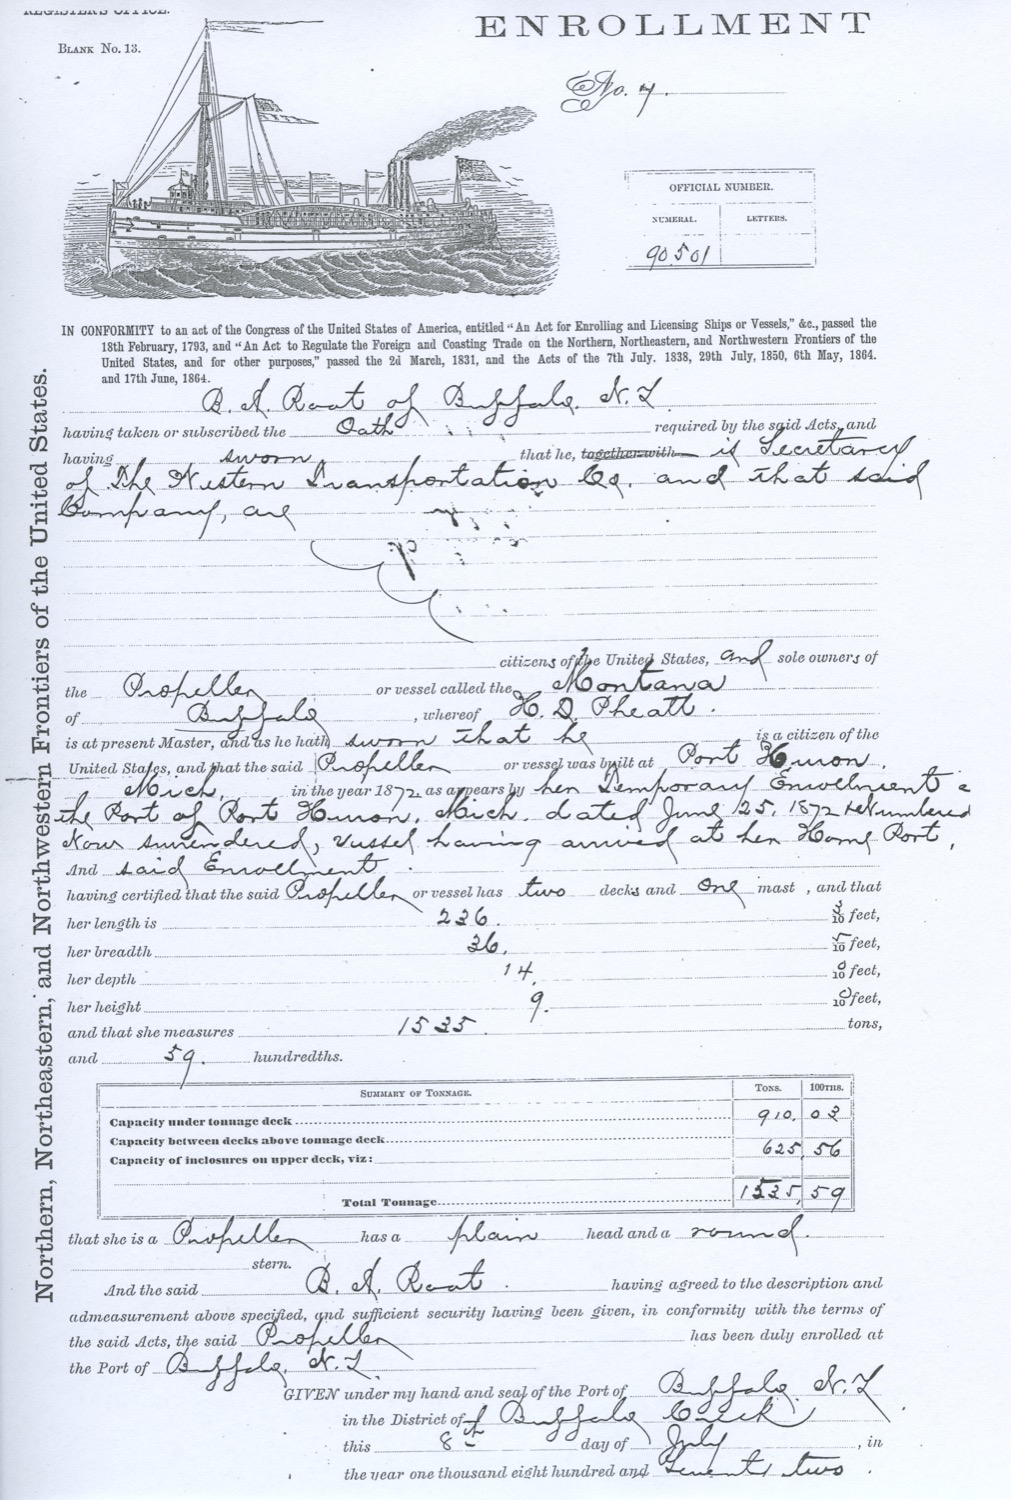 REGISTER'S OFFICE.
ENROLLMENT
BLANK NO. 13.
No. 7.
OFFICIAL NUMBER.
NUMERAL. LETTERS.
90501
IN CONFORMITY to an act of the Congress of the United States of America, entitled "An Act for Enrolling and Licensing Ships or Vessels," &c., passed the
18th February, 1793, and "An Act to Regulate the Foreign and Coasting Trade on the Northern, Northeastern, and Northwestern Frontiers of the
United States, and for other purposes," passed the 2d March, 1831, and the Acts of the 7th July. 1838, 29th July, 1850, 6th May, 1864.
and 17th June, 1864.
B. A. Root of Buffalo. N.Y.
having taken or subscribed the Oath required by the said Acts, and
having sworn that he, together with is Secretary
of The Western Transportation Co. and that said
Company, are
citizens of the United States, and sole owners of
the Propeller or vessel called the Montana
of Buffalo, whereof H. D. Pheatt.
is at present Master, and as he hath sworn that he is a citizen of the
United States, and that the said Propeller or vessel was built at Port Huron.
Mich. in the year 1872, as appears by her Temporary Enrollment
the Port of Port Huron, Mich. dated June 25, 1872
Now surrendered, Vessel having arrived at her Home Port,
And said Enrollment
having certified that the said Propeller or vessel has two decks and one mast, and that
her length is 236. 3/10 feet,
her breadth 36. 5/10 feet,
her depth 14. 0/10 feet,
her height 9. 0/10 feet,
and that she measures 1535. tons,
and 59. hundredths.
SUMMARY OF TONNAGE. TONS. 100THS.
Capacity under tonnage deck 910. 03
Capacity between decks above tonnage deck 625 56
Capacity of inclosures on upper deck, viz:
Total Tonnage 1535, 59
that she is a Propeller has a plain head and a round.
stern.
And the said B. A. Root. having agreed to the description and
admeasurement above specified, and sufficient security having been given, in conformity with the terms of
the said Acts, the said Propeller has been duly enrolled at
the Port of Buffalo, N.Y.
GIVEN under my hand and seal of the Port of Buffalo N.Y.
in the District of Buffalo Creek
this 8th day of July, in
the year one thousand eight hundred and Seventy two.
Northern, Northeastern, and Northwestern Frontiers of the United States.